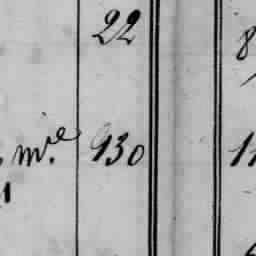 22
8
mᵉ. 930
11